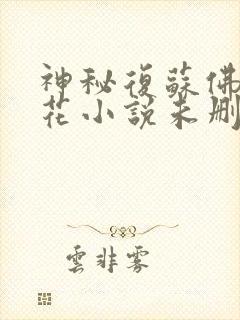 神秘復蘇佛
花小說未刪
雲非雾